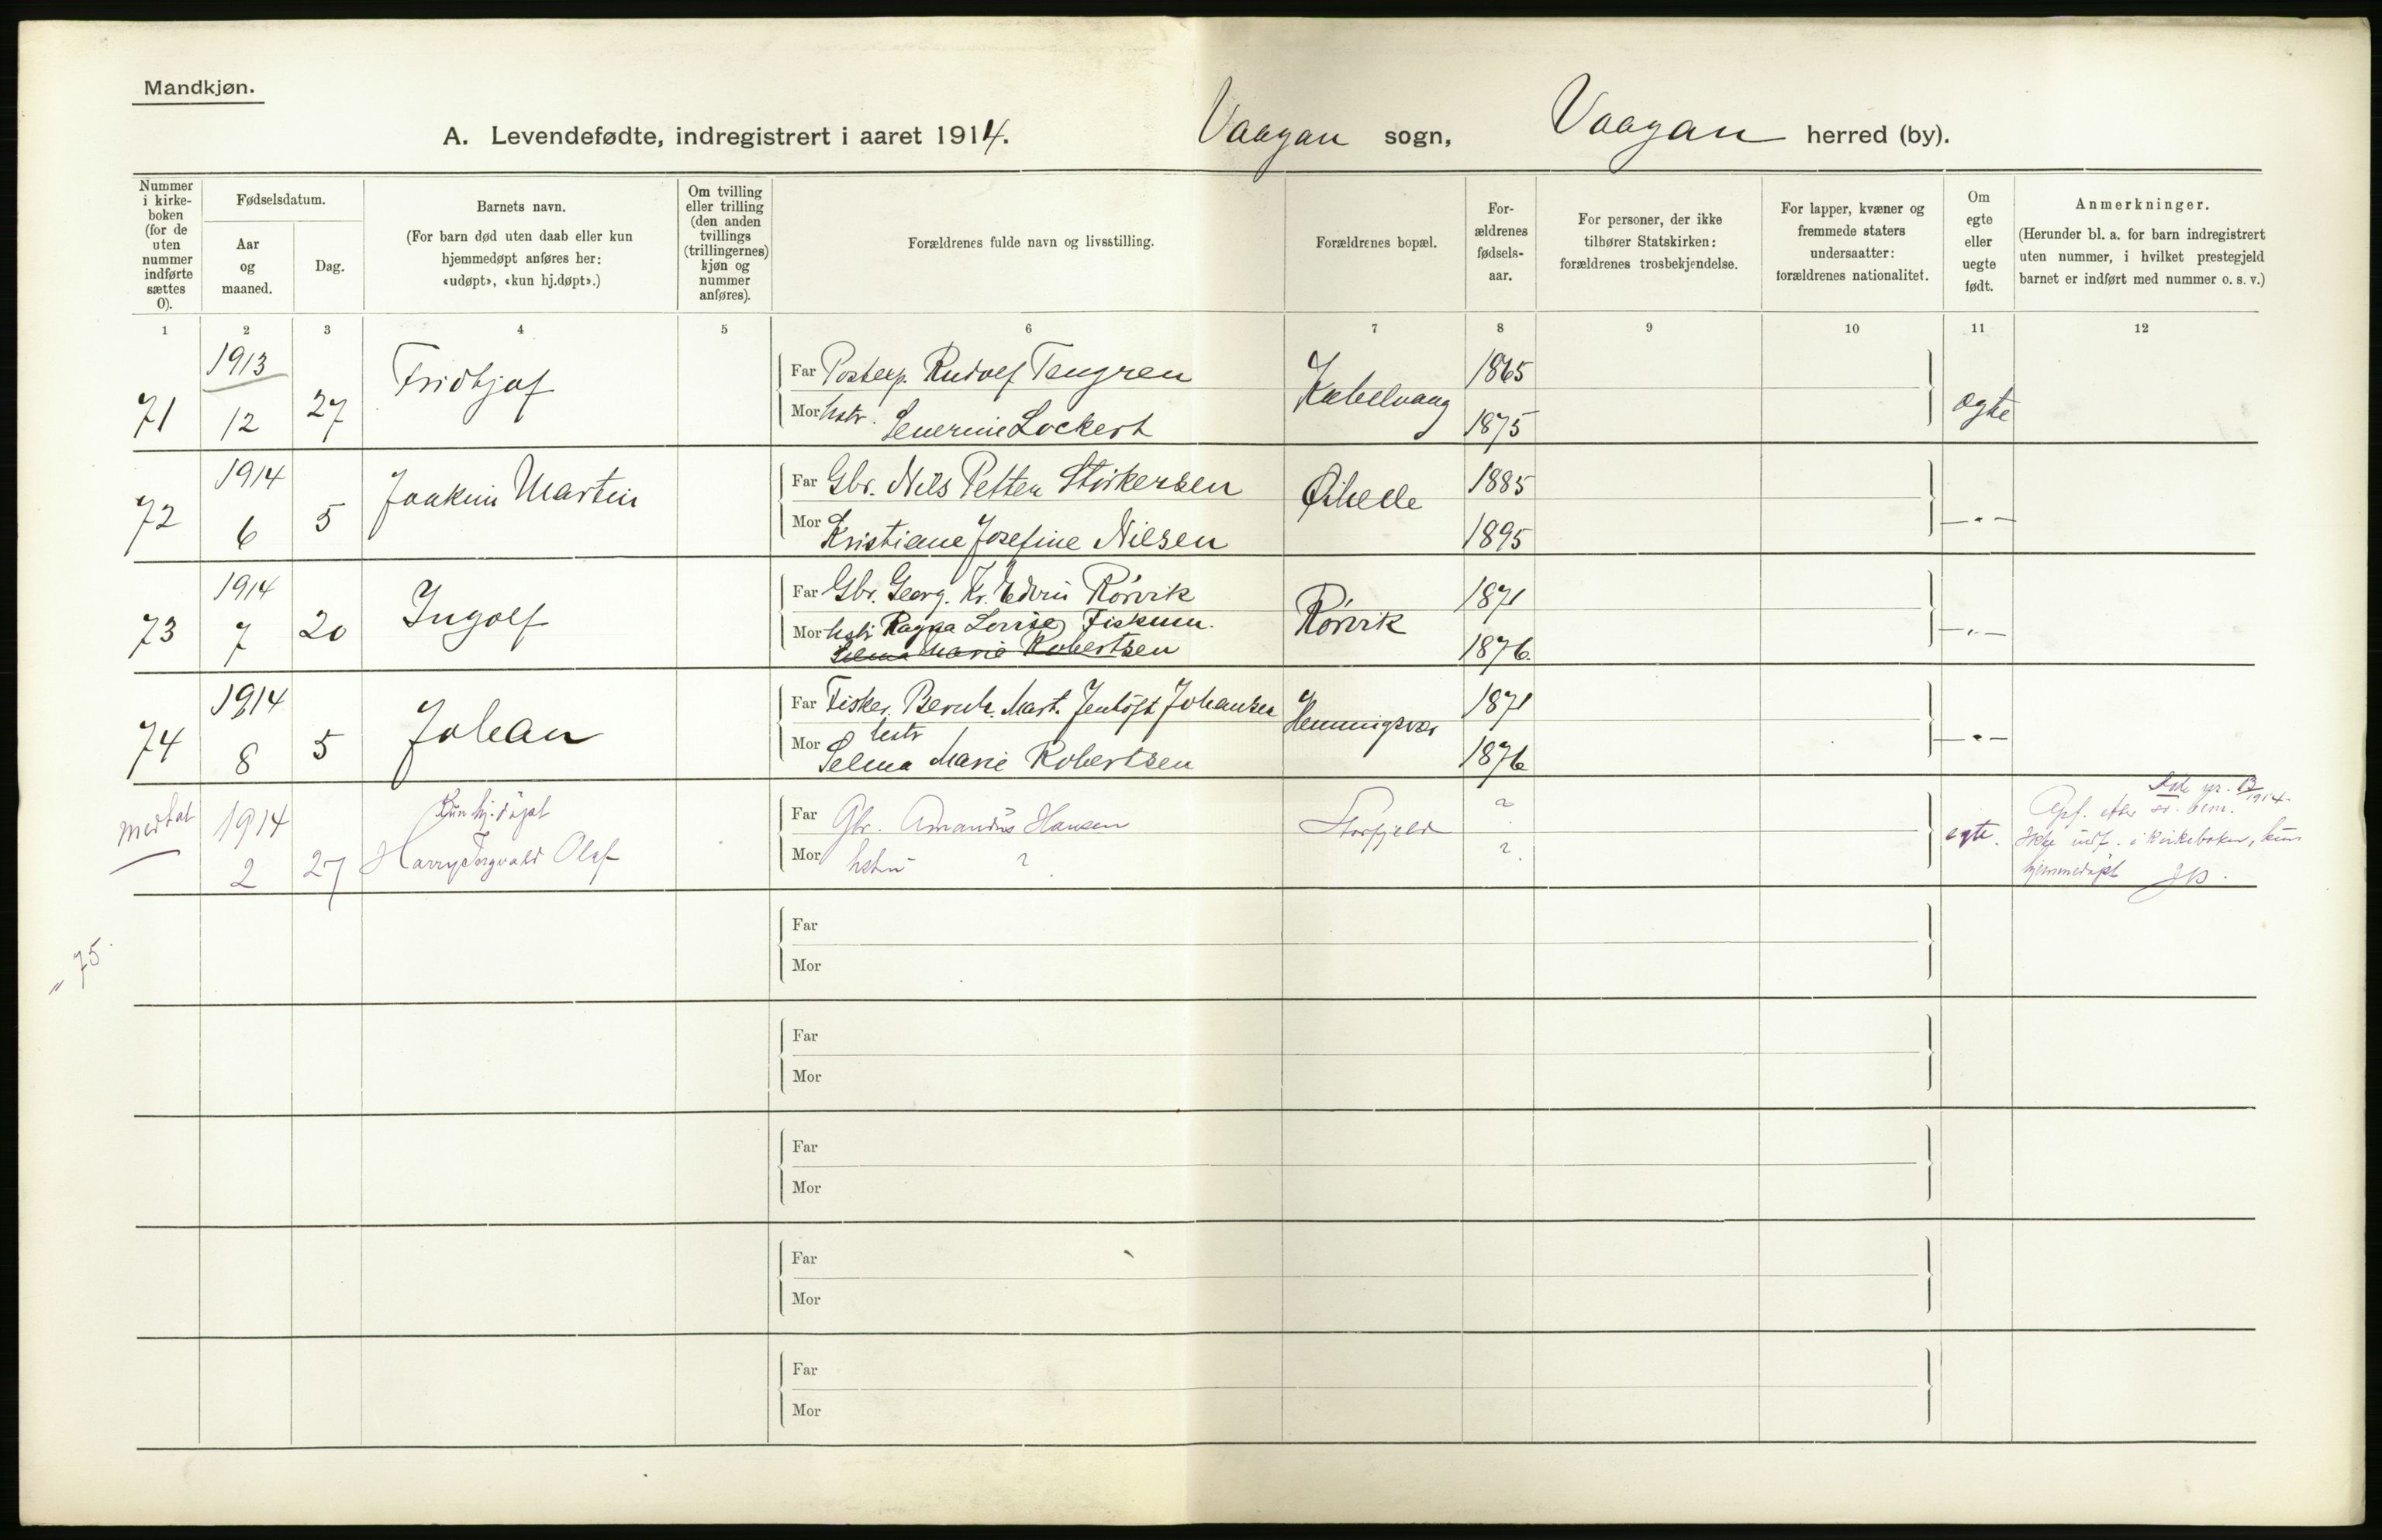 Mandkjøn.
A. Levendefødte, indregistrert i aaret 1914. Vaagan sogn, Vaagan herred (by).
Nummer i kirke-boken (for de uten nummer indførte sættes 0).
Fødselsdatum.
Aar og maaned.
Dag.
Barnets navn.
(For barn død uten daab eller kun hjemmedøpt anføres her: «udøpt», «kun hj.døpt».)
Om tvilling eller trilling (den anden tvillings (trillingernes) kjøn og nummer anføres).
Forældrenes fulde navn og livsstilling.
Forældrenes bopæl.
For-ældrenes fødsels-aar.
For personer, der ikke tilhører Statskirken: forældrenes trosbekjendelse.
For lapper, kvæner og fremmede staters undersaatter: forældrenes nationalitet.
Om egte eller uegte født.
Anmerkninger.
(Herunder bl. a. for barn indregistrert uten nummer, i hvilket prestegjeld barnet er indført med nummer o. s. v.)
1 2 3 4 5 6 7 8 9 10 11 12
71 1913 12 27 Fridtjof
Far Postexp. Rudolf Tengren Kabelvaag 1865
Mor hstr. Severine Lockert 1875 ægte
72 1914 6 5 Joakim Martin
Far Gbr. Nils Petter Störkersen Ørhelle 1885
Mor Kristiane Josefine Nilsen 1895 — " —
73 1914 7 20 Ingolf
Far Gbr. Georg. Kr. Edvin Rörvik Rörvik 1871
Mor hstr Ragna Lovise Fiskum.
Selma Marie Robertsen 1876. — " —
74 1914 8 5 Johan
Far Fisker. Bernh. Mart. Jentöft Johansen Henningsvær 1871
Mor hstr
Selma Marie Robertsen 1876 — " —
Medtat 1914 2 27 Kun hj.döpt
Harry Torgvald Olaf
Far Gbr. Amandus Hansen Storfjeld ?
Mor hstru ? ? egte.
nr. 13 1914.
Opf. efter
Ikke indf. i kirkeboken, kun
hjemmedöpt
" 75.
Far
Mor
Far
Mor
Far
Mor
Far
Mor
Far
Mor